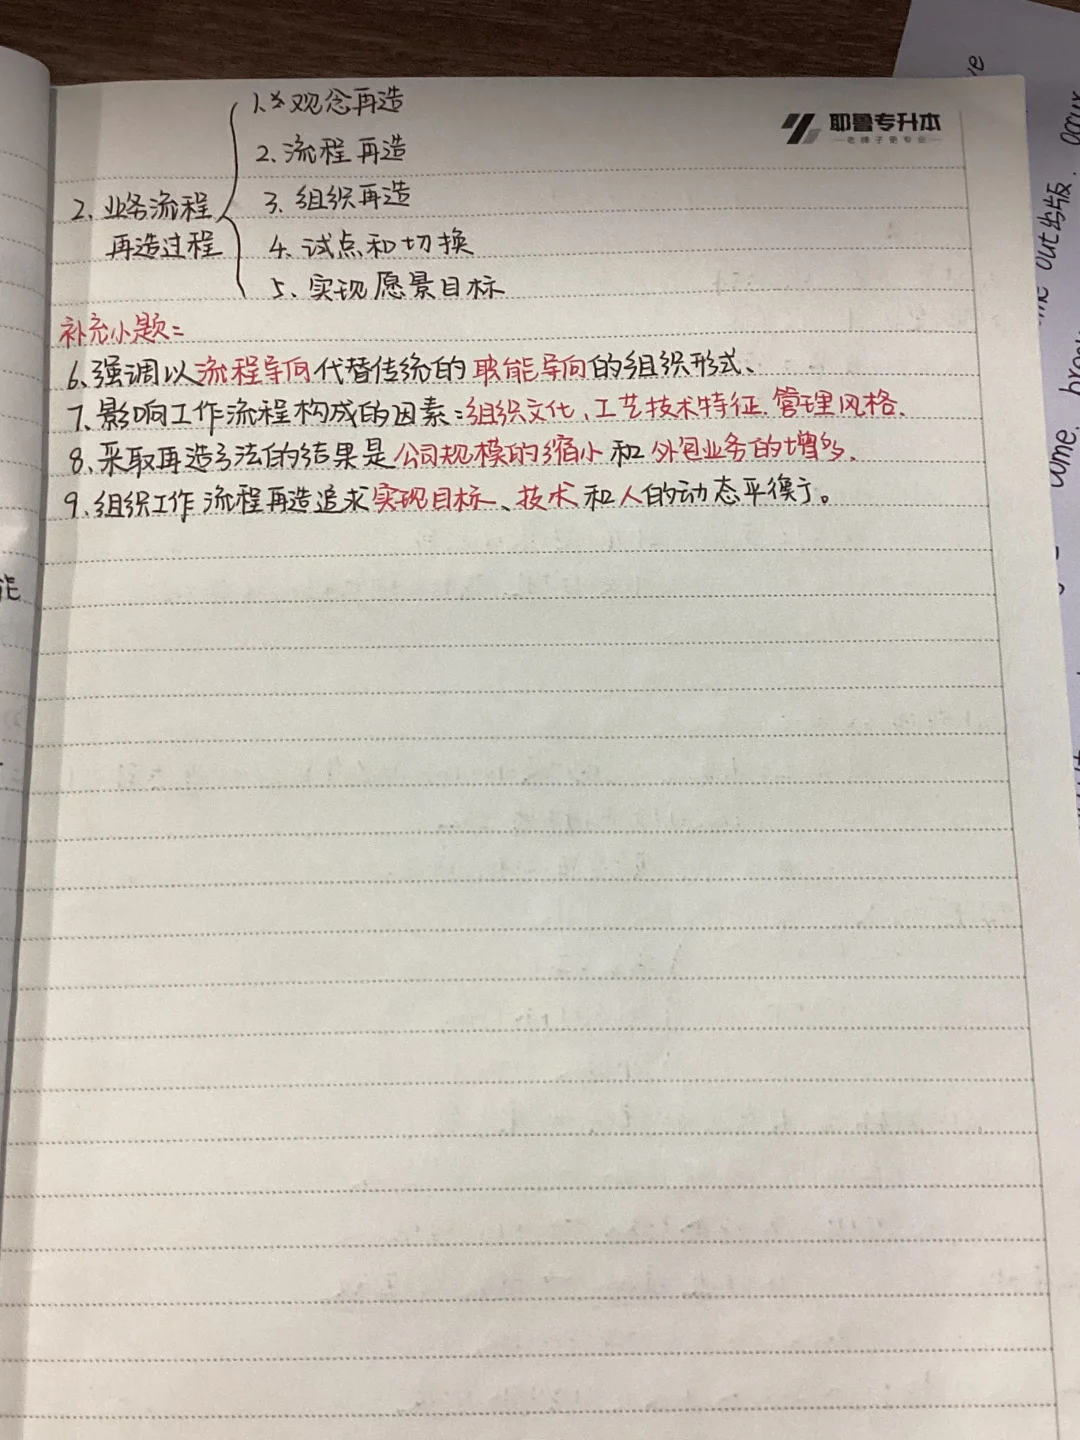 耶鲁专升本
老牌子更专业
1.观念再造
2.流程再造
2.业务流程
再造过程
3.组织再造
4.试点和切换
5、实现愿景目标
补充小题：
6.强调以流程导向代替传统的职能导向的组织形式、
7.影响工作流程构成的因素：组织文化、工艺技术特征、管理风格、
8、采取再造方法的结果是公司规模的缩小和外包业务的增多、
9.组织工作流程再造追求实现目标、技术和人的动态平衡。
能
out出版.
come.